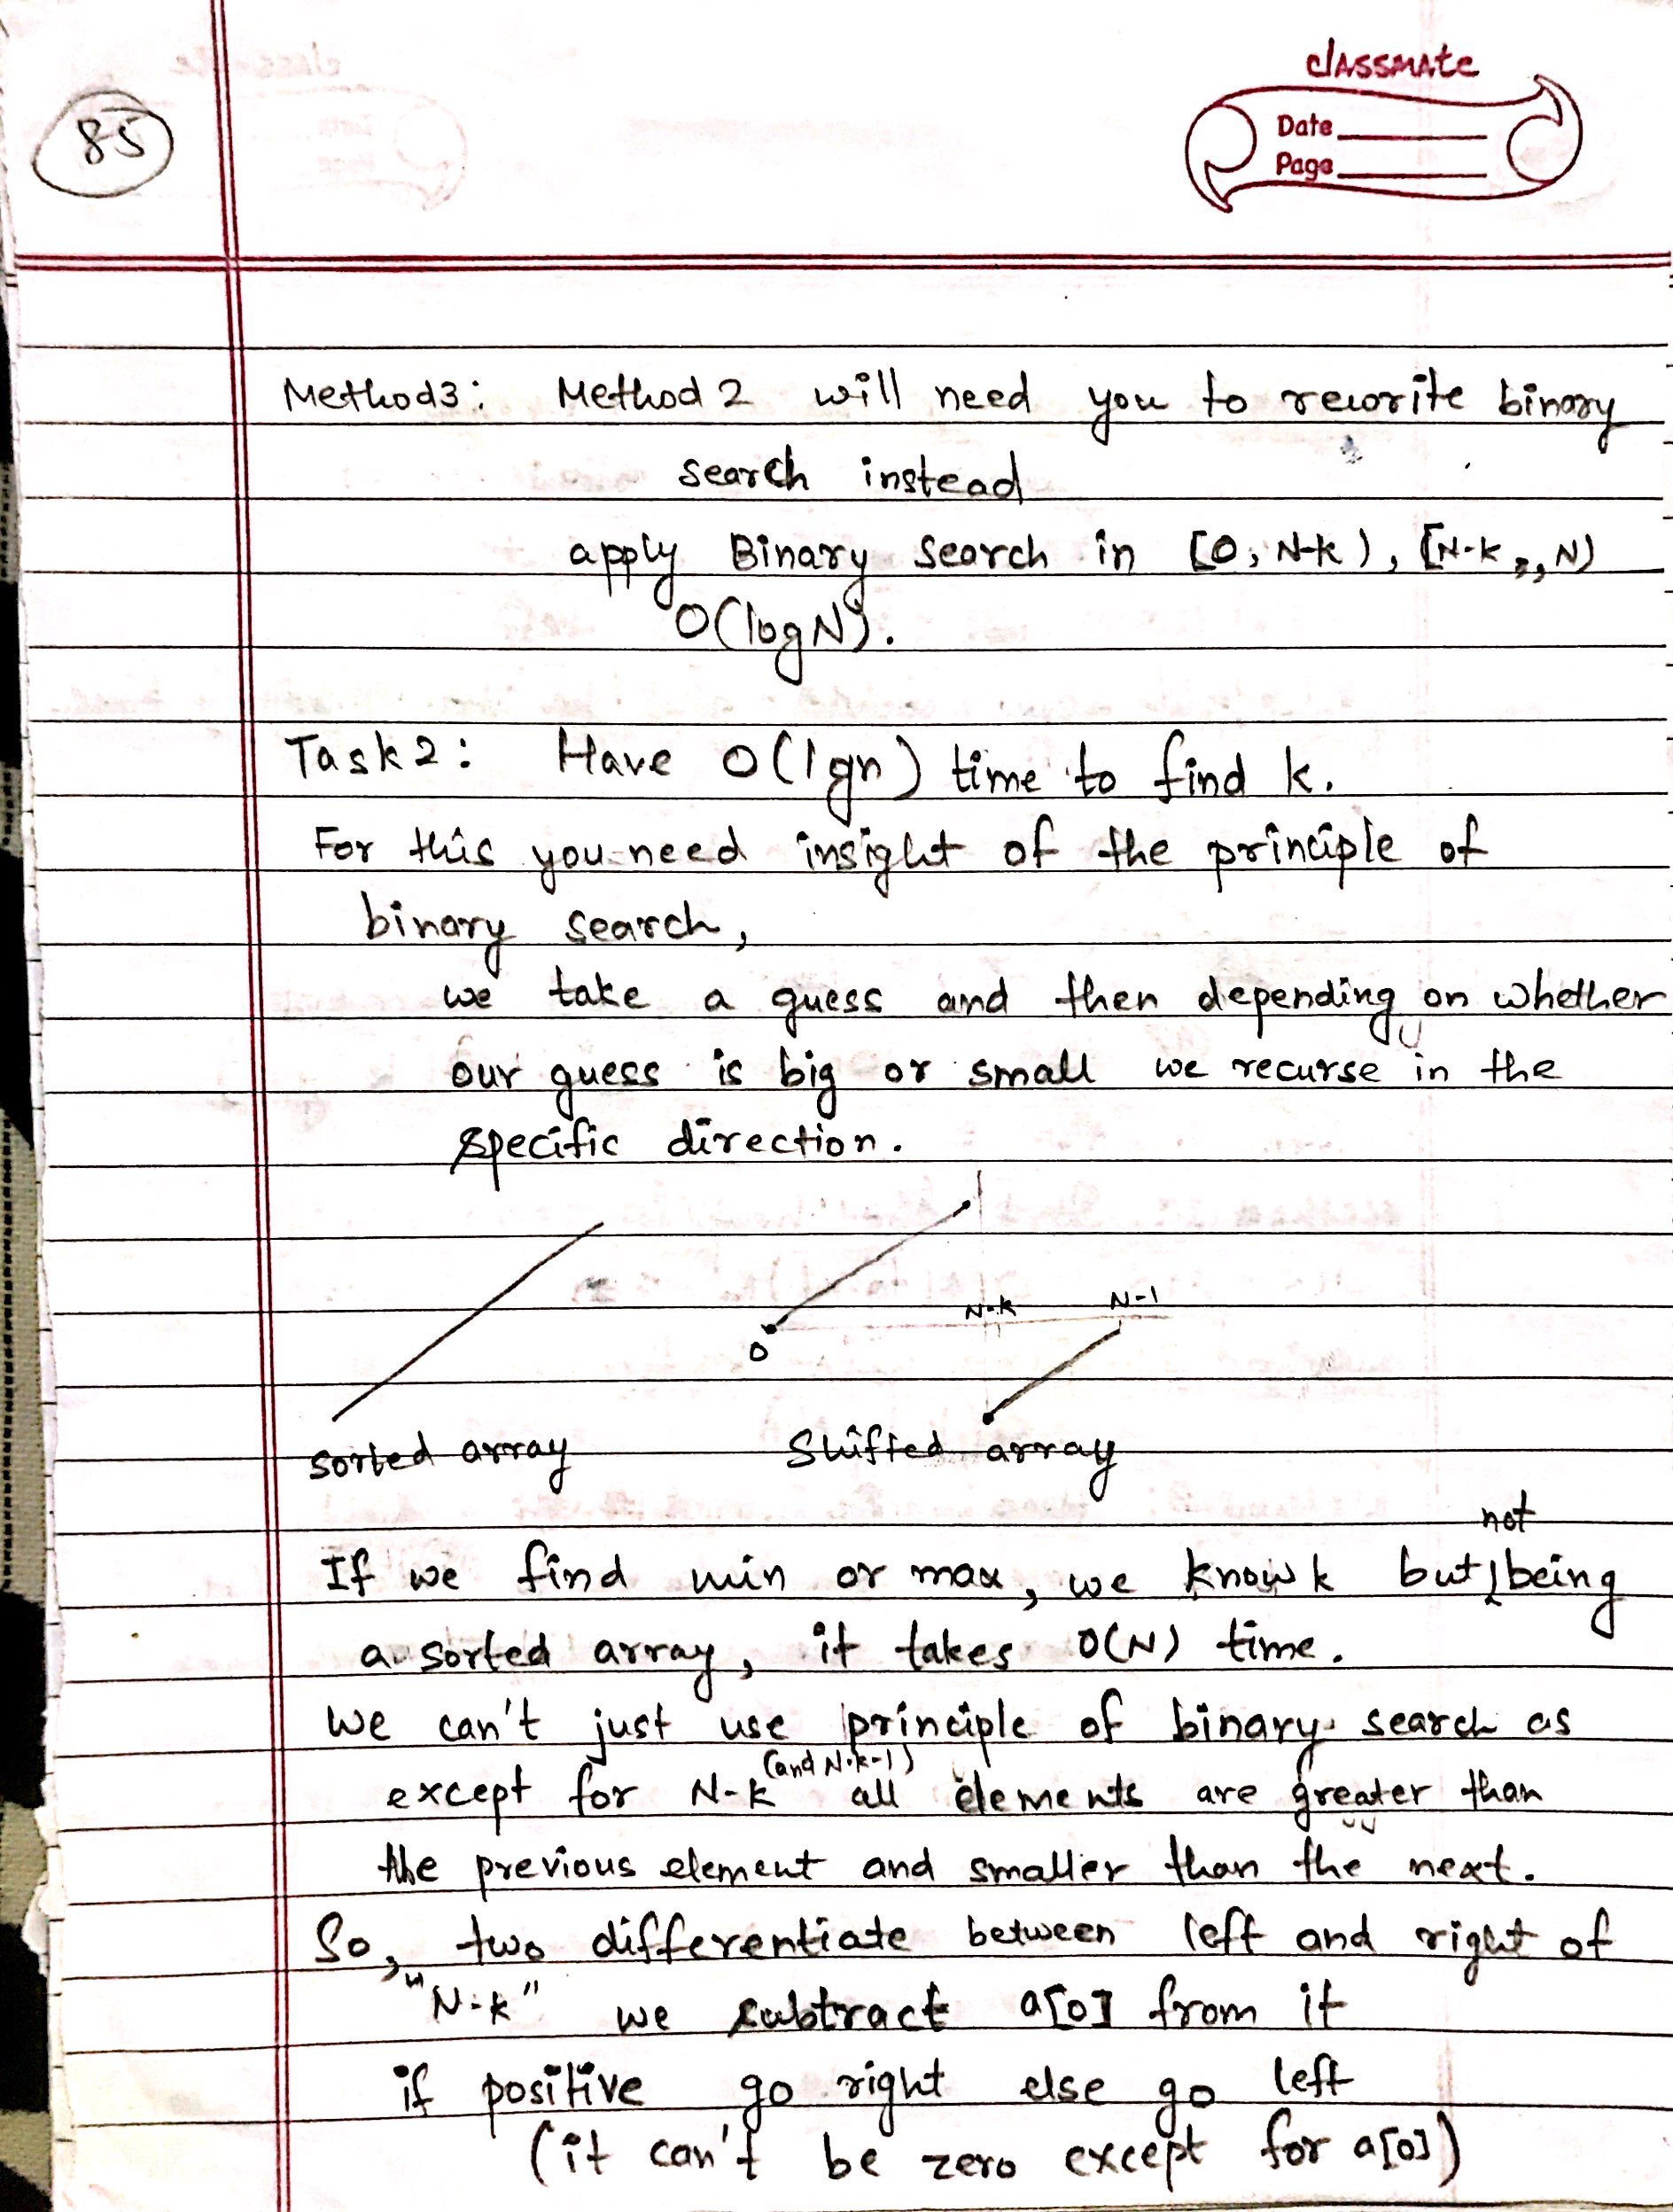 classmate
Date
Page
85
Method3: Method 2 will need you to rewrite binary
search instead
apply Binary Search in [0, N-k), [N-k, N)
O(log N).
Task 2: Have O(lgn) time to find k.
For this you need insight of the principle of
binary search,
we take a guess and then depending on whether
our guess is big or small we recurse in the
specific direction.
N-k N-1
0
sorted array Shifted array
not
If we find min or max, we know k but being
a sorted array, it takes O(N) time.
we can't just use principle of binary search as
(and N-k-1)
except for N-k all elements are greater than
the previous element and smaller than the next.
So, two differentiate between left and right of
"N-k" we subtract a[0] from it
if positive go right else go left
(it can't be zero except for a[0])